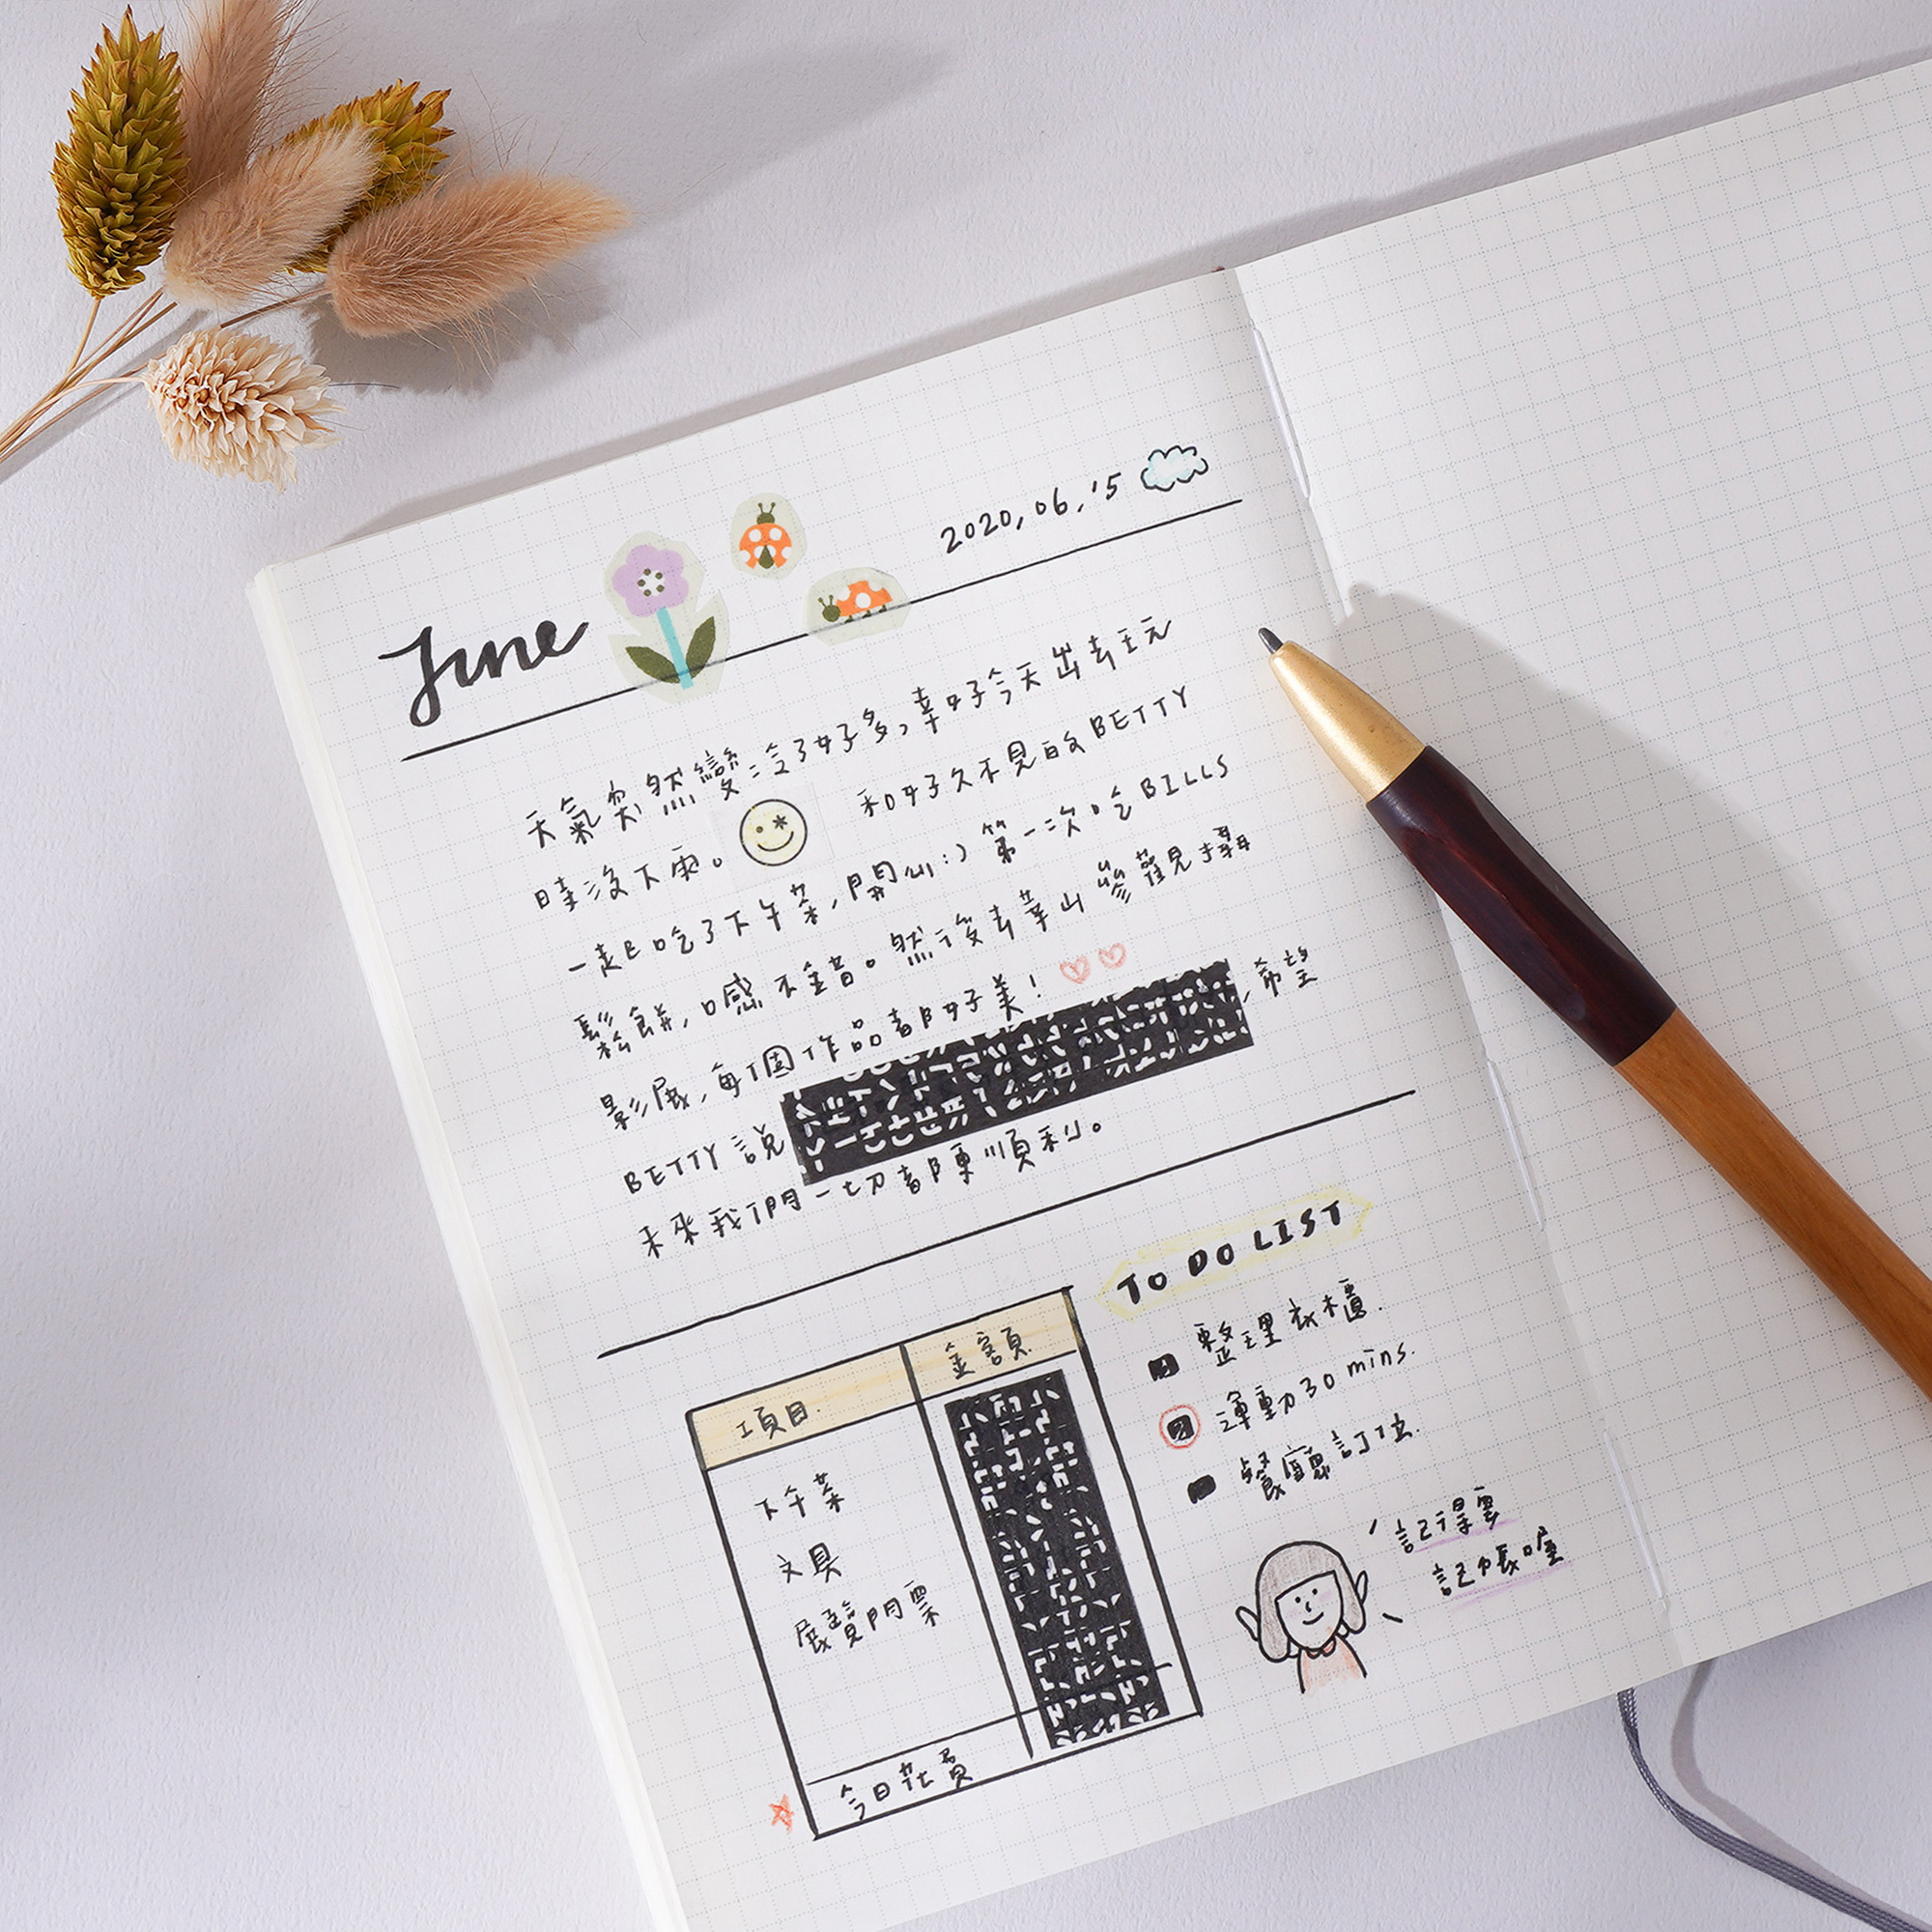 June
2020.06.15
天氣忽然變冷了好多，幸好今天出去玩
時沒下雨。和好久不見的BETTY
一起吃了下午茶，開心:) 第一次吃BILLS
鬆餅，口感不錯。然後去華山參觀攝
影展，每個作品都好美！
BETTY說，希望
未來我們一切都陳順利。
項目. 金額
下午茶
文具
展覽門票
今日花費
TO DO LIST
整理衣櫃.
運動30 mins.
餐廳訂位.
記得要
記帳喔